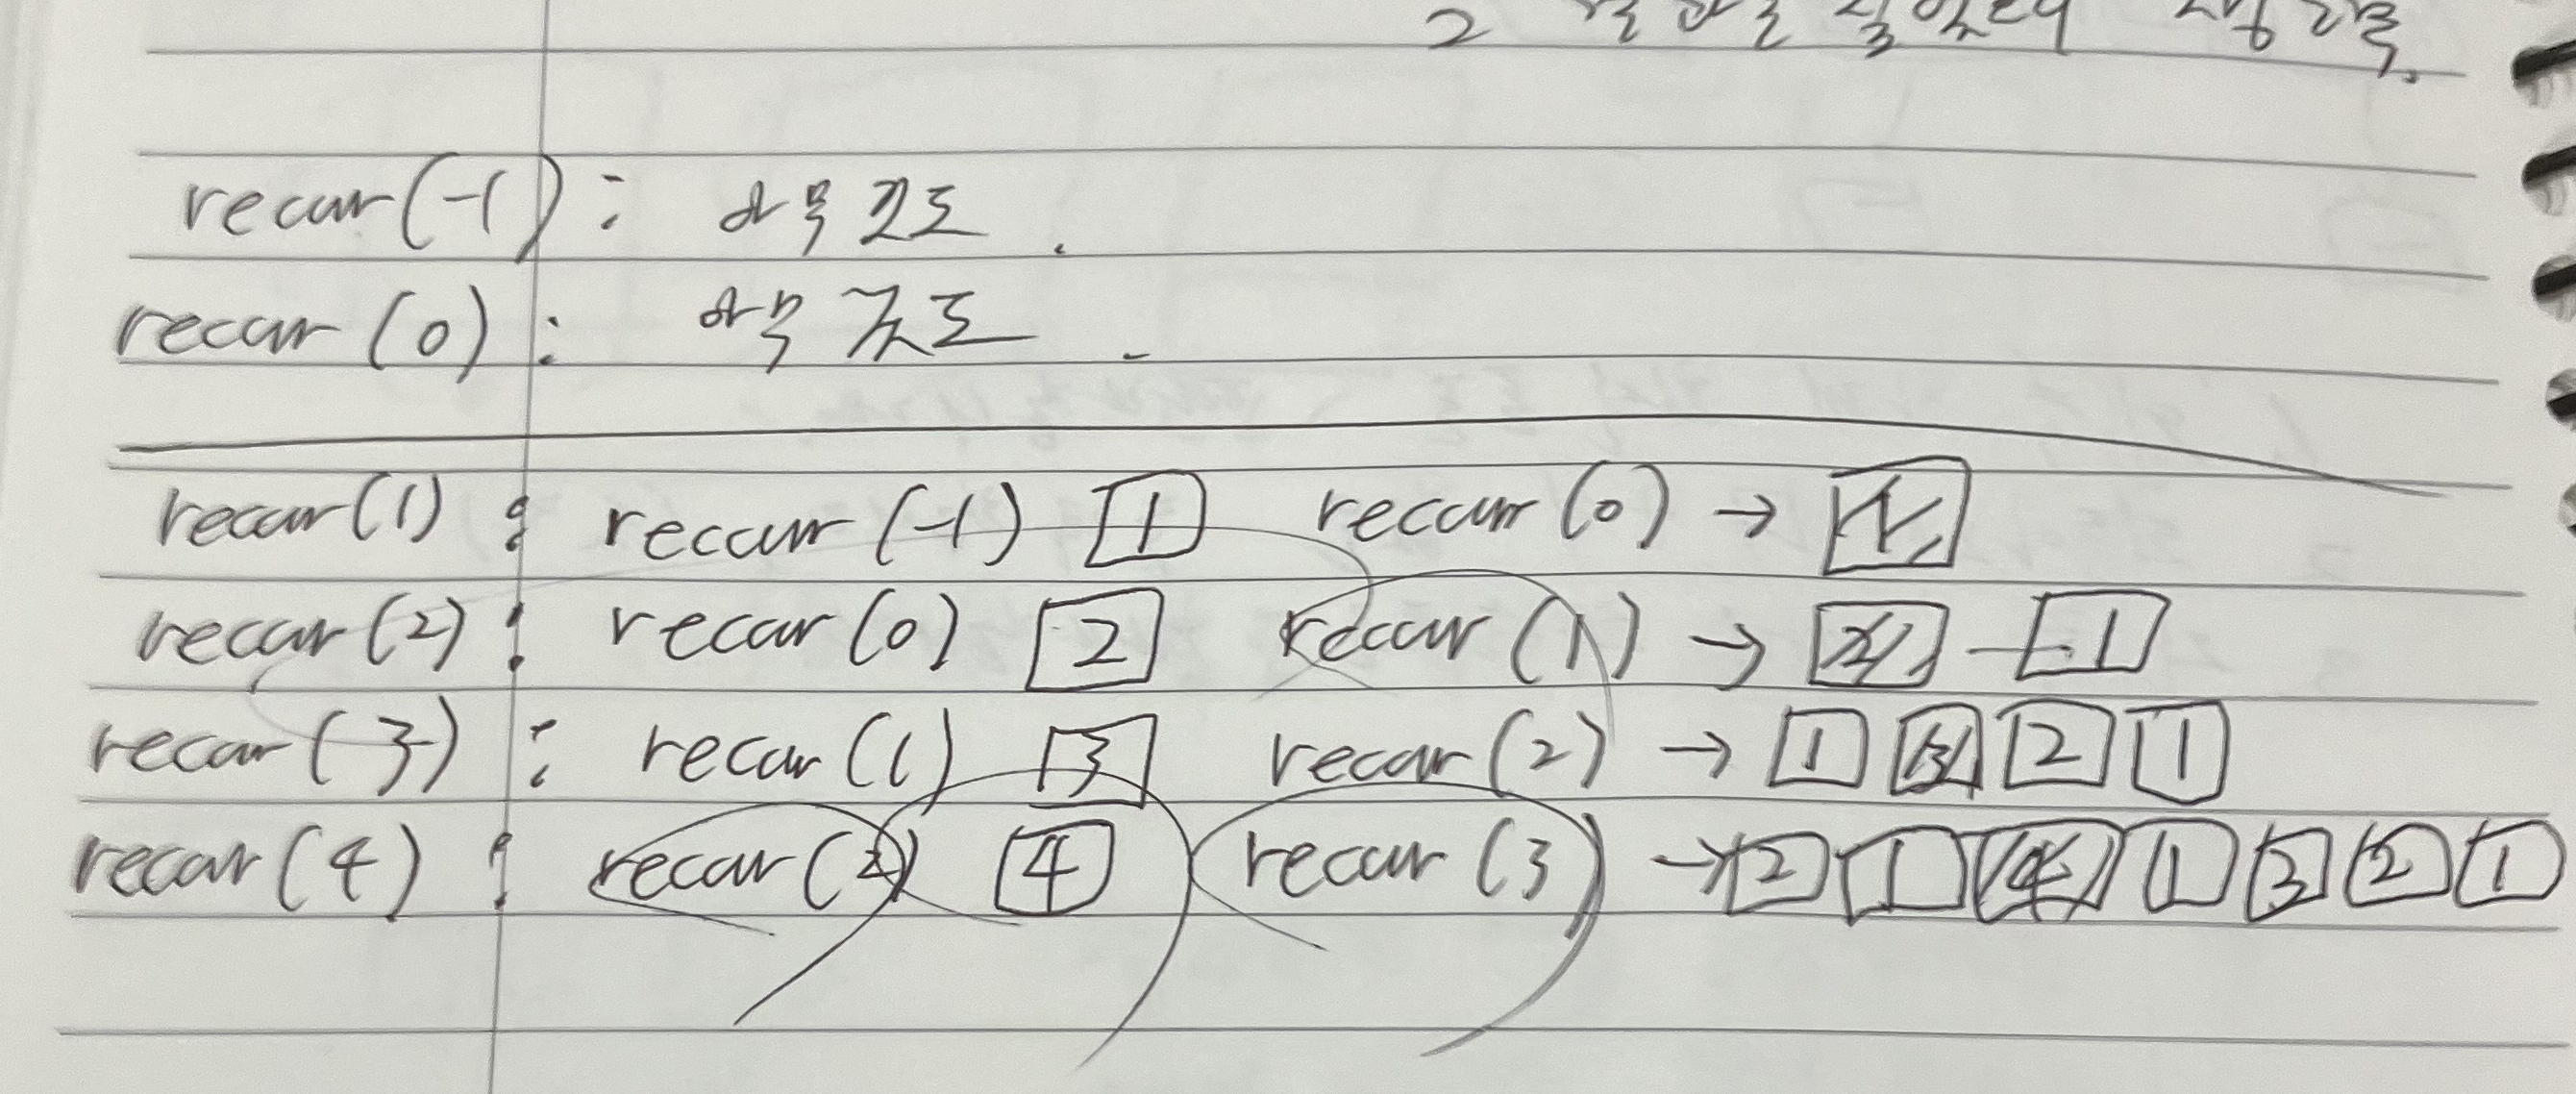 2
recur(-1) : 아무것도 .
recur (0) : 아무것도 .
recur(1) : recur (-1) 1 recur (0) → 1
recur (2) : recur (0) 2 recur (1) → 2 1
recur (3) : recur (1) 3 recur (2) → 1 3 2 1
recur (4) : recur (2) 4 recur (3) → 2 1 4 1 3 2 1